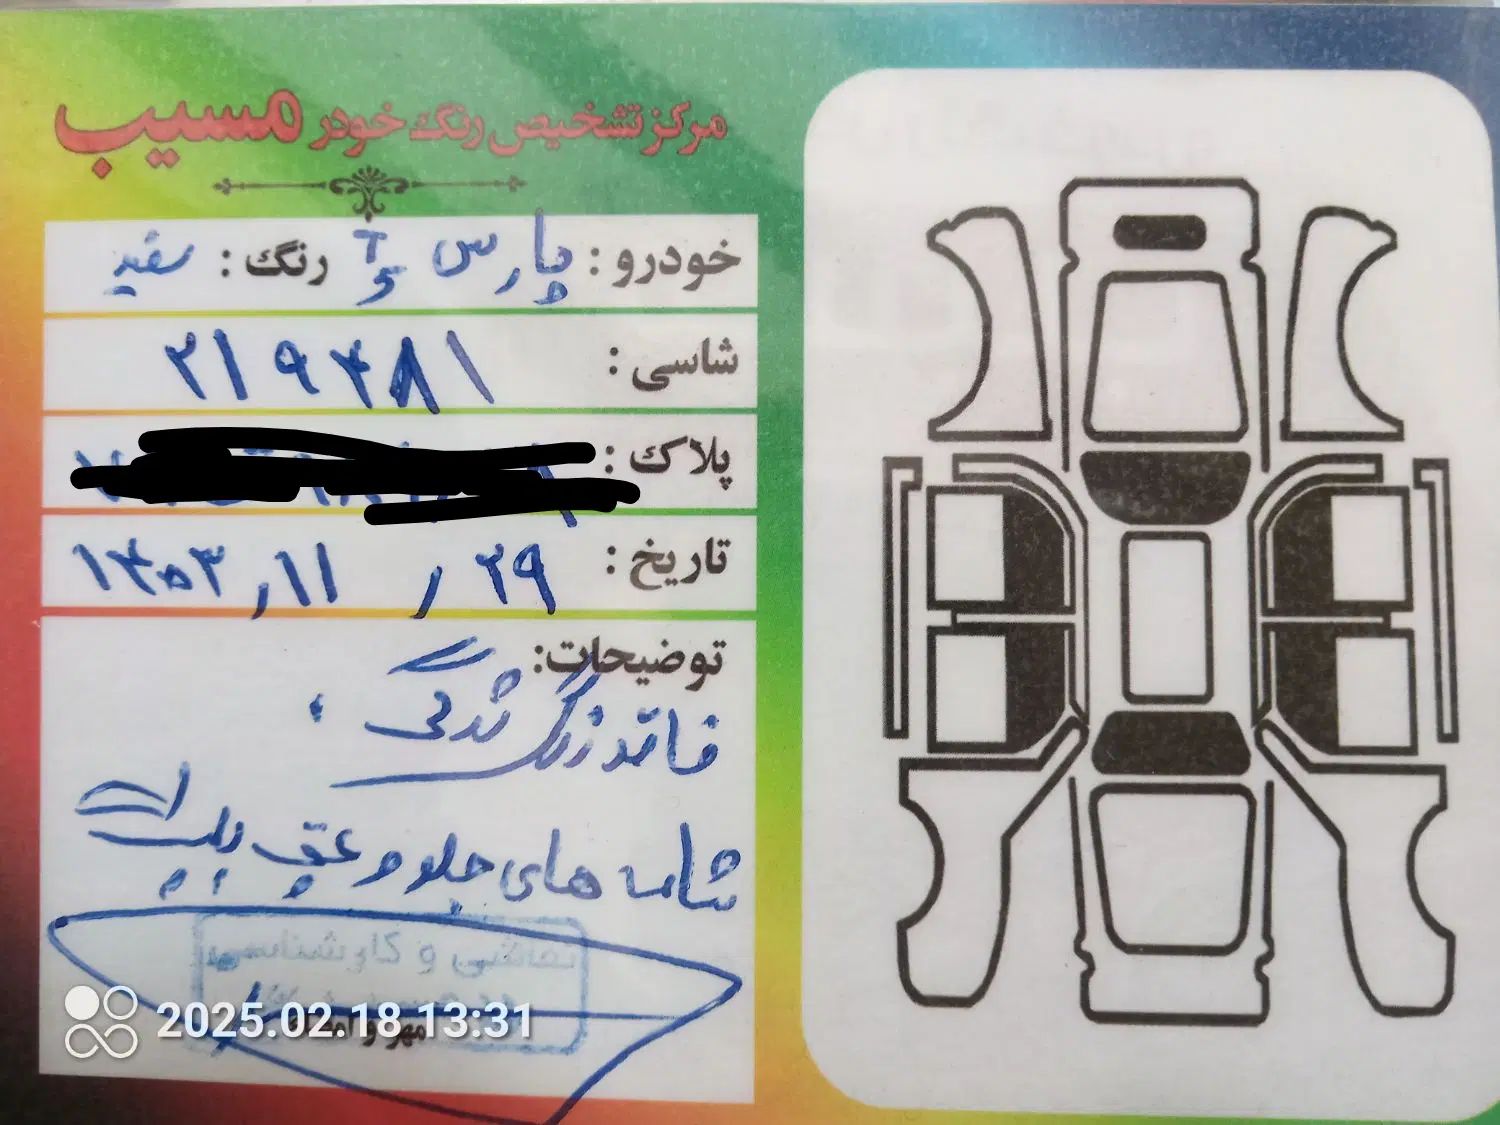 مرکز تشخیص رنگ خودر مسیب
خودرو : پارس T5 رنگ : سفید
شاسی : ۲۱۹۴۸۱
پلاک :
تاریخ : ۱۴۰۳/۱۱/۲۹
توضیحات:
فاقد رنگ شدگی
شاسی های جلو و عقب پلمپ
نقاشی و کارشناسی
مهر و امضاء
2025.02.18 13:31